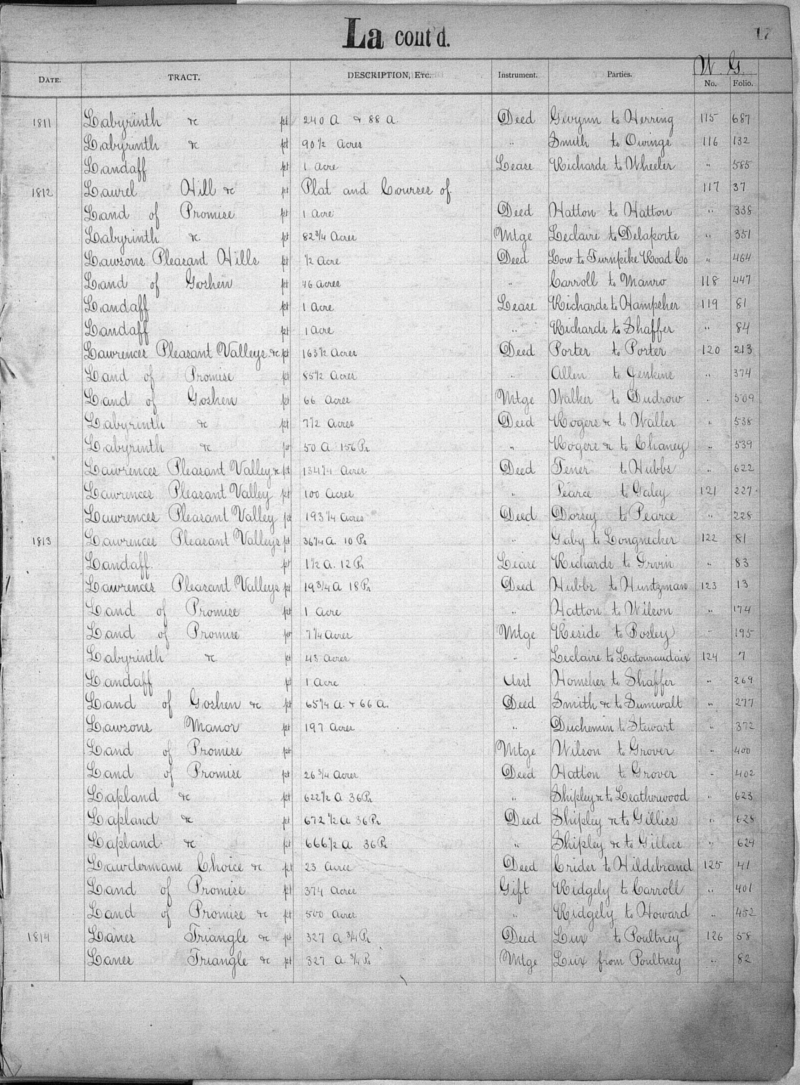 La cont'd.
17
W. G.
DATE. TRACT. DESCRIPTION, ETC. Instrument. Parties. No. Folio.
1811 Labyrinth &c pt 240 A & 88 A Deed Gwynn to Herring 115 687
Labyrinth &c pt 90 1/2 Acres " Smith to Owings 116 132
Landaff pt 1 Acre Lease Richards to Wheeler " 585
1812 Laurel Hill &c pt Plat and Courses of 117 37
Land of Promise pt 1 Acre Deed Hatton to Hatton " 338
Labyrinth &c pt 82 3/4 Acres Mtge Leclaire to Delaporte " 351
Lawsons Pleasant Hills pt 1/2 Acre Deed Low to Turnpike Road Co " 464
Land of Goshen pt 46 Acres " Carroll to Manro 118 447
Landaff pt 1 Acre Lease Richards to Hampsher 119 81
Landaff pt 1 Acre " Richards to Shaffer " 84
Lawrences Pleasant Valleys &c pt 163 1/2 Acres Deed Porter to Porter 120 213
Land of Promise pt 85 1/2 Acres " Allen to Jenkins " 374
Land of Goshen pt 66 Acres Mtge Walker to Dudrow " 509
Labyrinth &c pt 7 1/2 Acres Deed Rogers &c to Waller " 538
Labyrinth &c pt 50 A 156 Ps " Rogers &c to Chaney " 539
Lawrences Pleasant Valley &c pt 134 1/4 Acres Deed Fener to Hubbs " 622
Lawrences Pleasant Valley pt 100 Acres " Pearce to Galey 121 227
Lawrences Pleasant Valley pt 193 1/4 Acres Deed Dorsey to Pearce " 228
1813 Lawrences Pleasant Valleys pt 36 1/4 A 10 Ps " Gaby to Longnecker 122 81
Landaff pt 1 1/2 A. 12 Ps Lease Richards to Irvin " 83
Lawrences Pleasant Valleys pt 19 3/4 A 18 Ps Deed Hubbs to Huntzman 123 13
Land of Promise pt 1 Acre " Hatton to Wilson " 174
Land of Promise pt 7 1/4 Acres Mtge Reside to Posley " 195
Labyrinth &c pt 43 Acres " Leclaire to 124 7
Landaff pt 1 Acre Asst Homsher to Shaffer " 269
Land of Goshen &c pt 65 1/4 A & 66 A. Deed Smith &c to Sumwalt " 277
Lawsons Manor pt 197 Acres " Duchemin to Stewart " 372
Land of Promise pt Mtge Wilson to Grover " 400
Land of Promise pt 26 3/4 Acres Deed Hatton to Grover " 402
Lapland &c pt 622 1/2 A 36 Ps " Shipley &c to Leatherwood " 623
Lapland &c pt 672 1/2 A 36 Ps Deed Shipley &c to Gilliss " 628
Lapland &c pt 666 1/2 A 36 Ps " Shipley &c to Gilliss " 629
Lawdermans Choice &c pt 23 Acres Deed Crider to Hildebrand 125 41
Land of Promise pt 374 Acres Gift Ridgely to Carroll " 401
Land of Promise &c pt 500 Acres " Ridgely to Howard " 452
1814 Lanes Triangle &c pt 327 A 3/4 Ps Deed Lux to Poultney 126 58
Lanes Triangle &c pt 327 A 3/4 Ps Mtge Lux from Poultney " 82